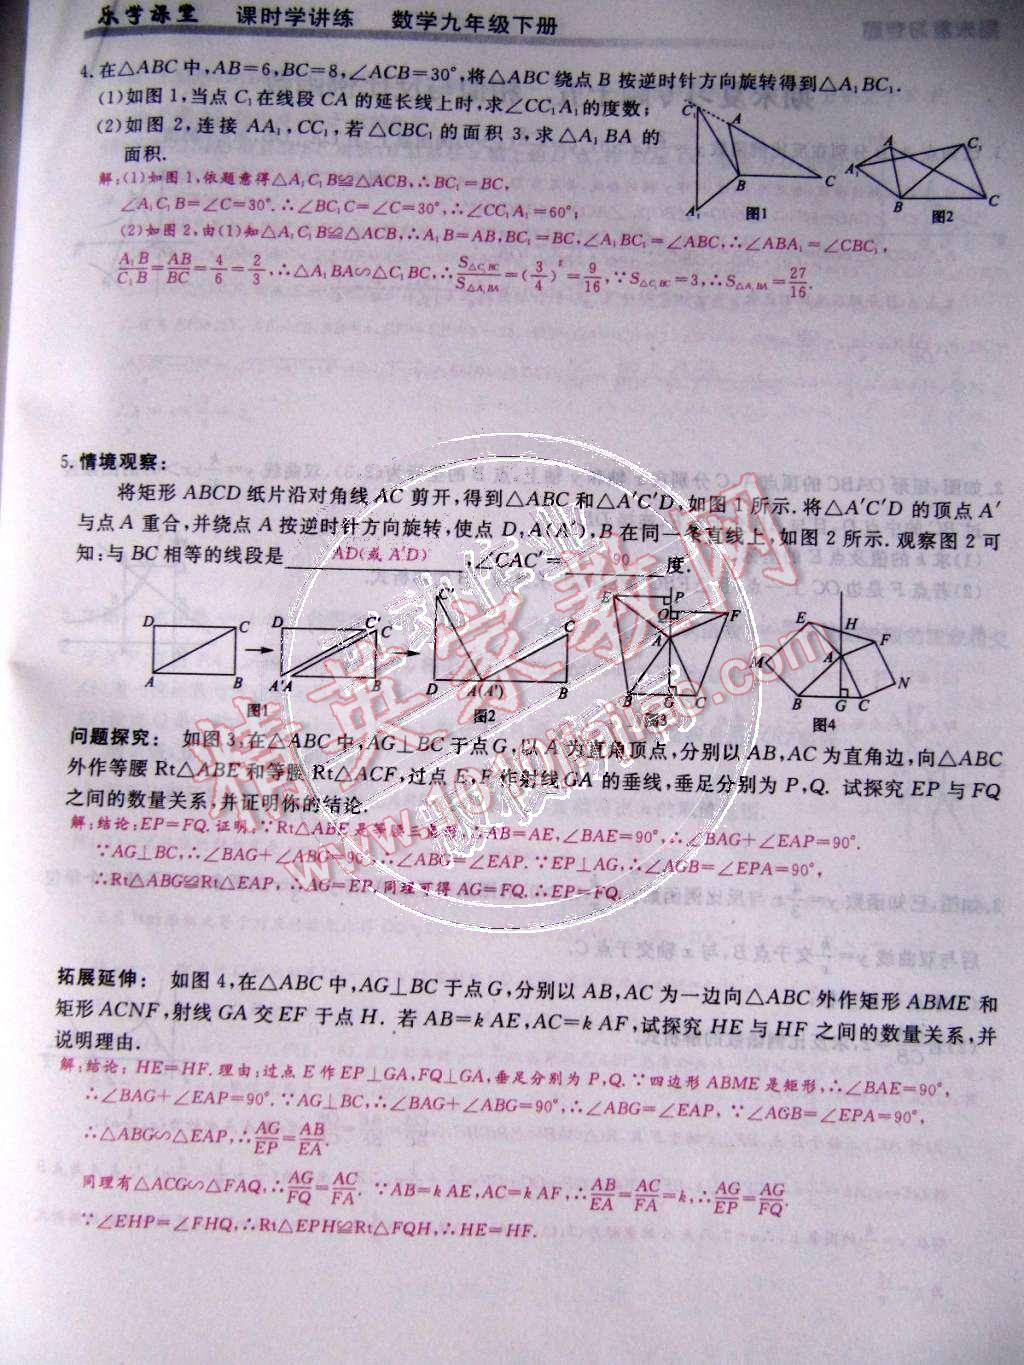 乐学课堂 课时学讲练 数学九年级下册
4.在△ABC中,AB=6,BC=8,∠ACB=30°,将△ABC绕点B按逆时针方向旋转得到△A₁BC₁.
(1)如图1,当点C₁在线段CA的延长线上时,求∠CC₁A₁的度数;
(2)如图2,连接AA₁,CC₁,若△CBC₁的面积3,求△A₁BA的
面积.
C₁ A B C A₁ 图1
A A₁ B C₁ C 图2
解:(1)如图1,依题意得△A₁C₁B≌△ACB,∴BC₁=BC,
∠A₁C₁B=∠C=30°.∴∠BC₁C=∠C=30°,∴∠CC₁A₁=60°;
(2)如图2,由(1)知△A₁C₁B≌△ACB,∴A₁B=AB,BC₁=BC,∠A₁BC₁=∠ABC,∴∠ABA₁=∠CBC₁,
A₁B/C₁B=AB/BC=4/6=2/3,∴△A₁BA∽△C₁BC,∴S△C₁BC/S△A₁BA=(3/4)²=9/16,∵S△C₁BC=3,∴S△A₁BA=27/16.
5.情境观察:
将矩形ABCD纸片沿对角线AC剪开,得到△ABC和△A′C′D,如图1所示.将△A′C′D的顶点A′
与点A重合,并绕点A按逆时针方向旋转,使点D,A(A′),B在同一条直线上,如图2所示.观察图2可
知:与BC相等的线段是 AD(或A′D) ,∠CAC′= 90 度.
D C A B D C′ C A′ A B 图1
C′ C D A(A′) B 图2
E P Q F A B G C 图3
E H F M A N B G C 图4
问题探究: 如图3,在△ABC中,AG⊥BC于点G,以A为直角顶点,分别以AB,AC为直角边,向△ABC
外作等腰Rt△ABE和等腰Rt△ACF,过点E,F作射线GA的垂线,垂足分别为P,Q. 试探究EP与FQ
之间的数量关系,并证明你的结论.
解:结论:EP=FQ.证明:∵Rt△ABE是等腰三角形,∴AB=AE,∠BAE=90°,∴∠BAG+∠EAP=90°.
∵AG⊥BC,∴∠BAG+∠ABG=90°,∴∠ABG=∠EAP.∵EP⊥AG,∴∠AGB=∠EPA=90°,
∴Rt△ABG≌Rt△EAP, ∴AG=EP.同理可得AG=FQ.∴EP=FQ.
拓展延伸: 如图4,在△ABC中,AG⊥BC于点G,分别以AB,AC为一边向△ABC外作矩形ABME和
矩形ACNF,射线GA交EF于点H. 若AB=kAE,AC=kAF,试探究HE与HF之间的数量关系,并
说明理由.
解:结论:HE=HF.理由:过点E作EP⊥GA,FQ⊥GA,垂足分别为P,Q.∵四边形ABME是矩形,∴∠BAE=90°,
∴∠BAG+∠EAP=90°.∵AG⊥BC,∴∠BAG+∠ABG=90°,∴∠ABG=∠EAP, ∵∠AGB=∠EPA=90°,
∴△ABG∽△EAP,∴AG/EP=AB/EA.
同理有△ACG∽△FAQ,∴AG/FQ=AC/FA. ∵AB=kAE,AC=kAF,∴AB/EA=AC/FA=k,∴AG/EP=AG/FQ.
∵∠EHP=∠FHQ,∴Rt△EPH≌Rt△FQH,∴HE=HF.